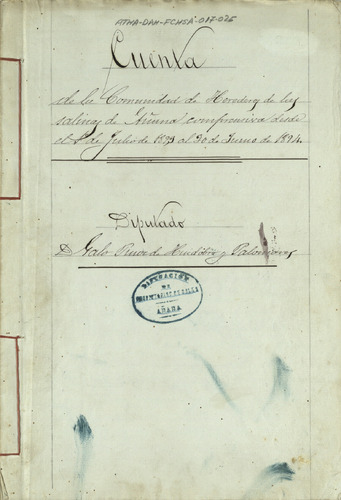 ATHA-DAH-FCHSA-017-026
Cuenta
de la Comunidad de Herederos de las
salinas de Añana comprensiva desde
el 1º de Julio de 1893 al 30 de Junio de 1894.
Diputado
D. Galo de y
DIPUTACION
DE
PROPIETARIOS DE SALES
AÑANA